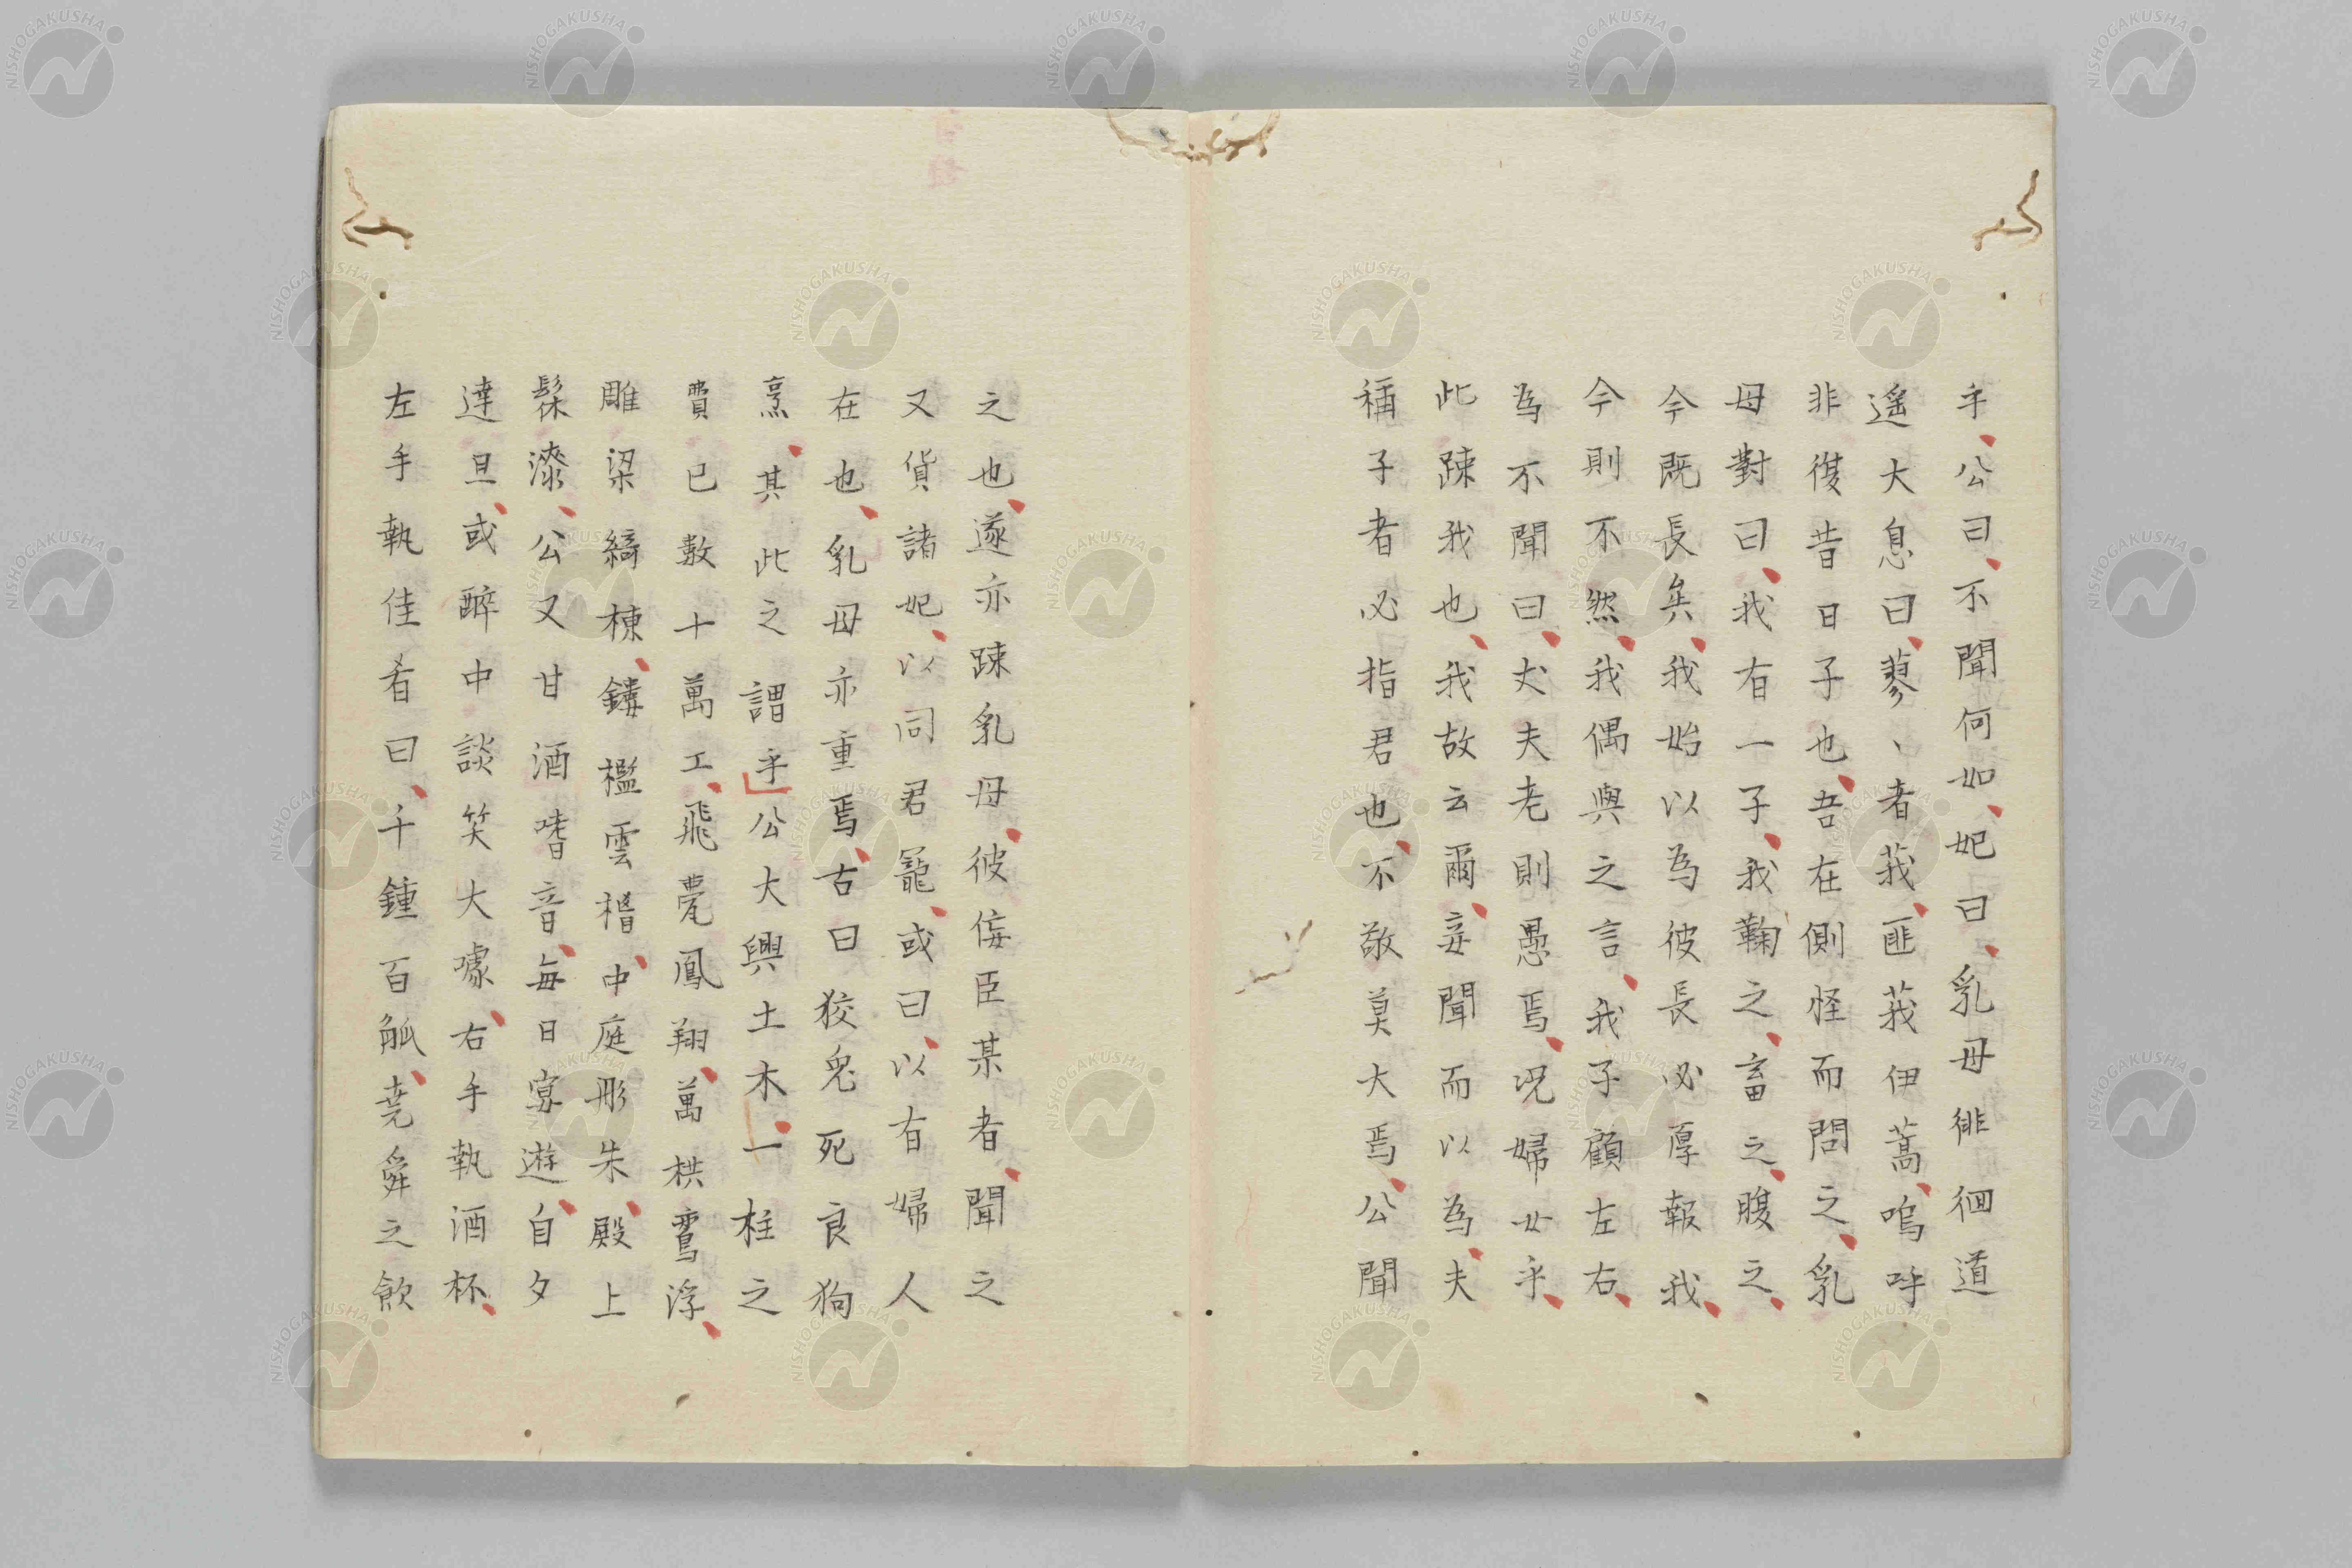 乎、公曰、不聞何如、妃曰、乳母徘徊道
遥大息曰、蓼〻者莪、匪莪伊蒿、嗚呼
非復昔日子也、吾在側怪而問之、乳
母對曰、我有一子、我鞠之、畜之、腹之、
今既長矣、我始以為彼長必厚報我、
今則不然、我偶與之言、我子顧左右、
為不聞曰、丈夫老則愚焉、况婦女乎、
此踈我也、我故云爾、妾聞而以為、夫
稱子者必指君也、不敬莫大焉、公聞
之也、遂亦踈乳母、彼侮臣某者、聞之
又貨諸妃、以同君寵、或曰、以有婦人
在也、乳母亦重焉、古曰狡兎死良狗
烹、其此之謂乎」公大興土木、一柱之
費已数十萬工、飛甍鳳翔、萬栱鸞浮、
雕梁綺棟、鏤檻雲楣、中庭彤朱、殿上
髹漆、公又甘酒嗜音、毎日宴遊、自夕
達旦、或醉中談笑大噱、右手執酒杯、
左手執佳肴曰、千鍾百觚、堯舜之飲
NISHOGAKUSHA